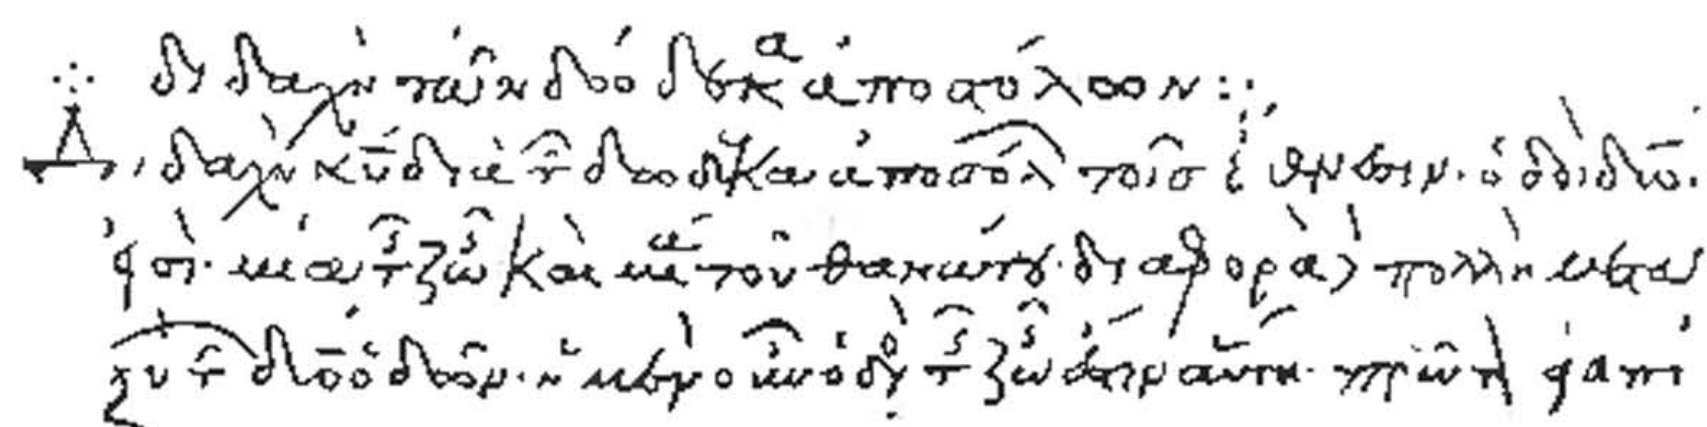 διδαχὴ τῶν δώδεκα ἀποστόλων:
Διδαχὴ κ̅υ̅ διὰ τ̑ δώδεκα ἀποστόλ τοῖσ ἔθνεσιν. ὁδοὶ δύο
εἰσὶ· μία τῆς ζωῆς καὶ μία τοῦ θανάτου· διαφορὰ πολλὴ μετα
ξὺ τ̑ δύο ὁδῶν. ἡ μὲν οὖν ὁδὸς τῆς ζωῆς ἐστιν αὕτη· πρῶτον ἀγαπή